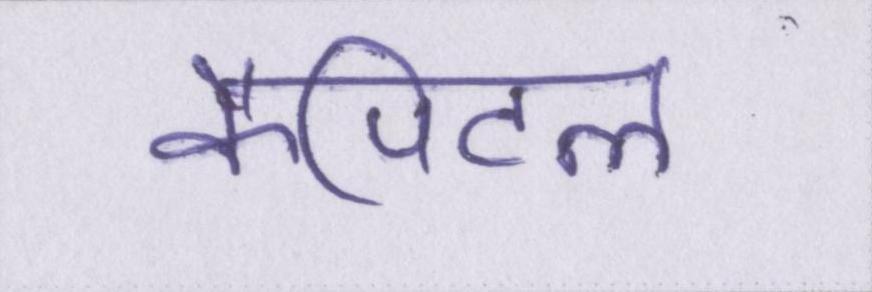 कैपिटल